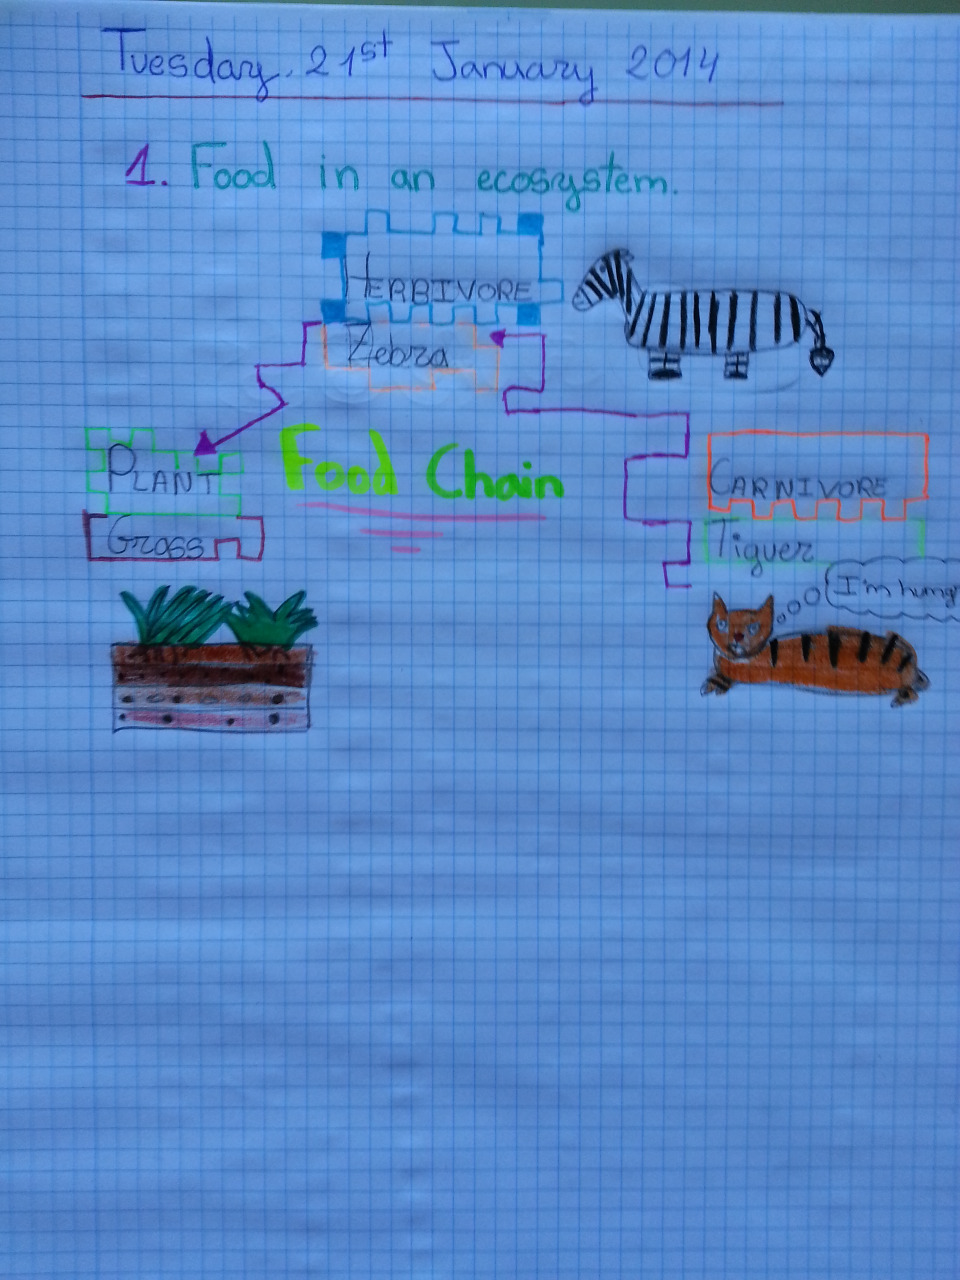 Tuesday, 21st January 2014
1. Food in an ecosystem.
HERBIVORE
Zebra
Food Chain
PLANT
Gross
CARNIVORE
Tiguer
I'm hung